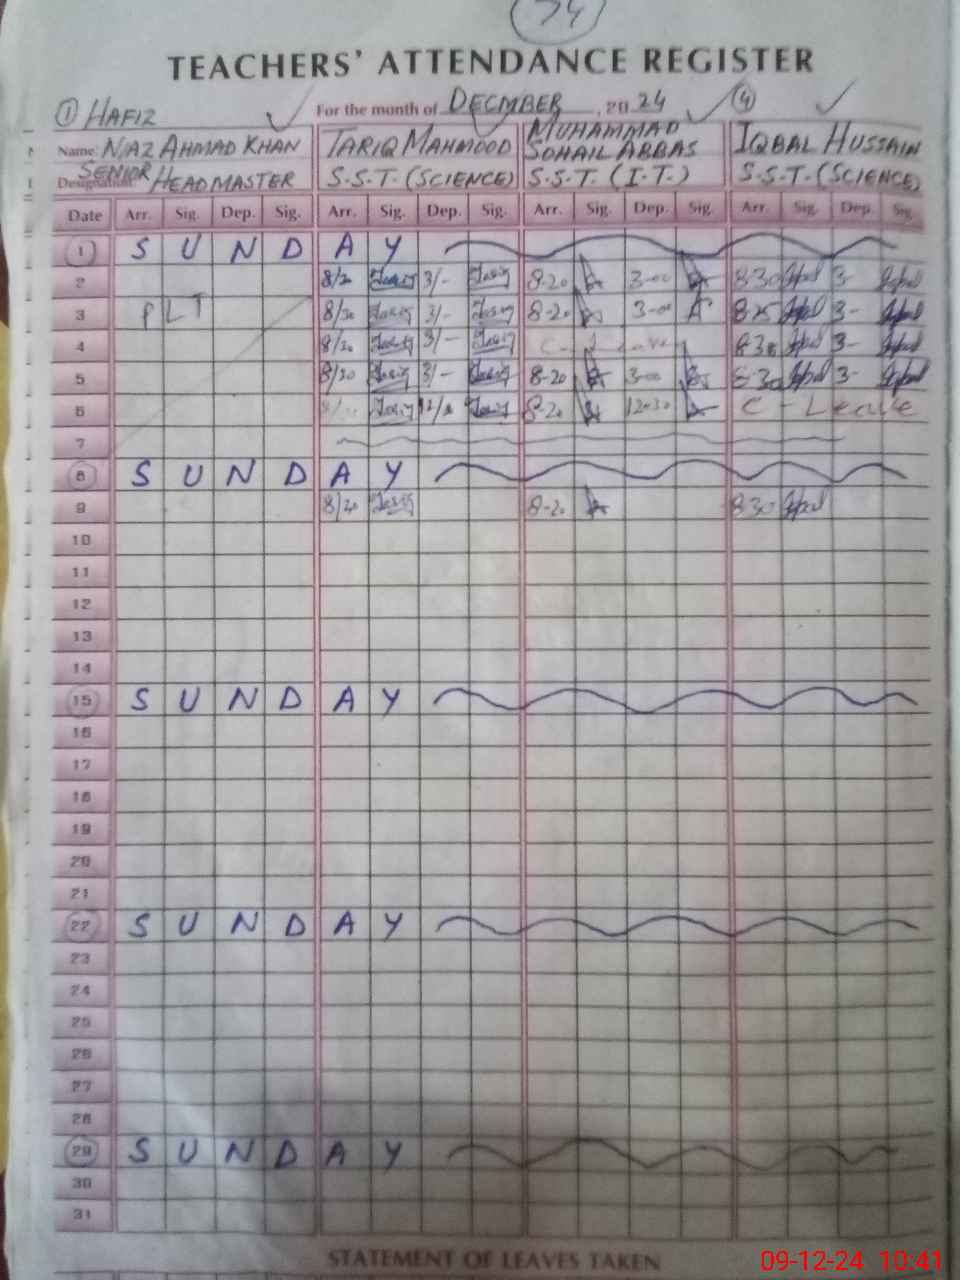 74
TEACHERS' ATTENDANCE REGISTER
For the month of DECMBER, 2024
① HAFIZ ④
Name NIAZ AHMAD KHAN TARIQ MAHMOOD MUHAMMAD SOHAIL ABBAS IQBAL HUSSAIN
Designation SENIOR HEADMASTER S.S.T. (SCIENCE) S.S.T. (I.T.) S.S.T. (SCIENCE)
Date Arr. Sig. Dep. Sig. Arr. Sig. Dep. Sig. Arr. Sig. Dep. Sig. Arr. Sig. Dep. Sig.
1 S U N D A Y
2 8/20 Tariq 3/- Tariq 8-20 3-00 830 Iqbal 3- Iqbal
3 PLT 8/20 Tariq 3/- Tariq 8-20 3-00 825 Iqbal 3- Iqbal
4 8/20 Tariq 3/- Tariq C- Leave 830 Iqbal 3- Iqbal
5 8/20 Tariq 3/- Tariq 8-20 3-00 830 Iqbal 3- Iqbal
6 Tariq Tariq 8-20 12-30 C - Leave
7
8 S U N D A Y
9 8/20 Tariq 8-20 830 Iqbal
10
11
12
13
14
15 S U N D A Y
16
17
18
19
20
21
22 S U N D A Y
23
24
25
26
27
28
29 S U N D A Y
30
31
STATEMENT OF LEAVES TAKEN
09-12-24 10:41